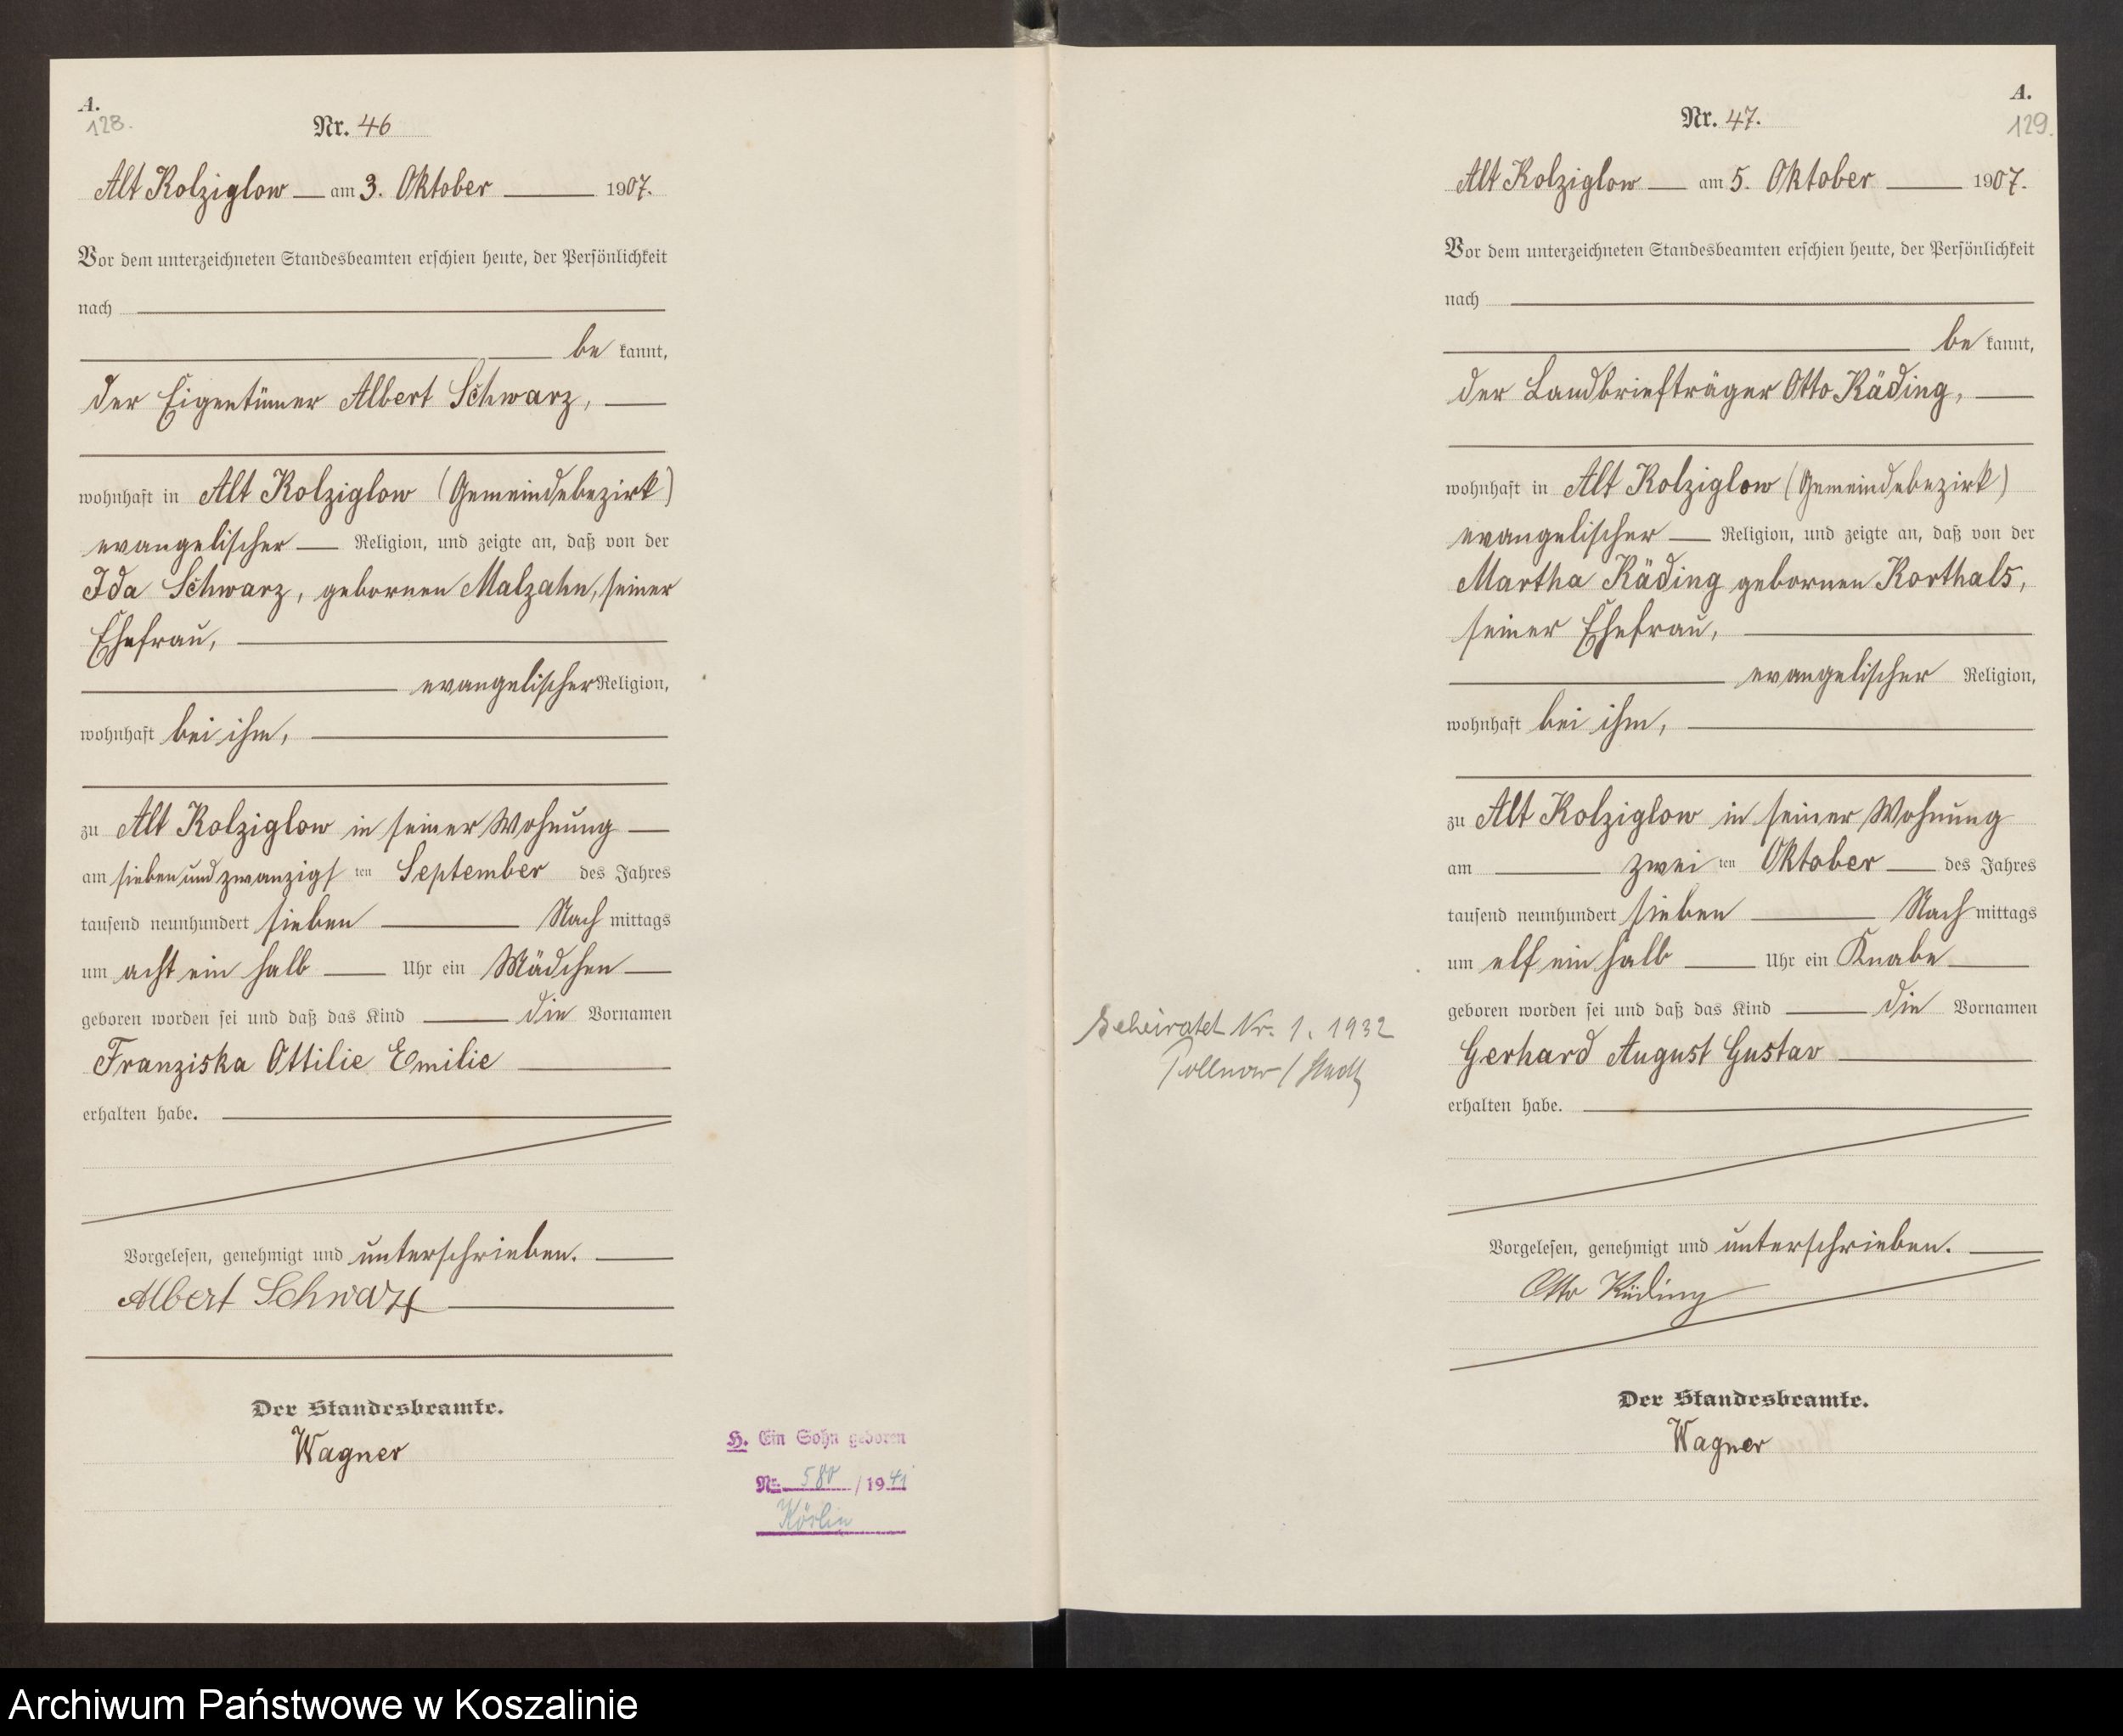 A.
128.
Nr. 46
Alt Kolziglow am 3. Oktober 1907.
Vor dem unterzeichneten Standesbeamten erschien heute, der Persönlichkeit
nach
be kannt,
der Eigentümer Albert Schwarz,
wohnhaft in Alt Kolziglow (Gemeindebezirk)
evangelischer Religion, und zeigte an, daß von der
Ida Schwarz, gebornen Malzahn, seiner
Ehefrau,
evangelischer Religion,
wohnhaft bei ihm,
zu Alt Kolziglow in seiner Wohnung
am sieben und zwanzigs ten September des Jahres
tausend neunhundert sieben Nach mittags
um acht ein halb Uhr ein Mädchen
geboren worden sei und daß das Kind die Vornamen
Franziska Ottilie Emilie
erhalten habe.
Vorgelesen, genehmigt und unterschrieben.
Albert Schwarz
Der Standesbeamte.
Wagner
H. Ein Sohn geboren
Nr. 580 / 1941
Körlin
A.
129.
Nr. 47.
Alt Kolziglow am 5. Oktober 1907.
Vor dem unterzeichneten Standesbeamten erschien heute, der Persönlichkeit
nach
be kannt,
der Landbriefträger Otto Käding,
wohnhaft in Alt Kolziglow (Gemeindebezirk)
evangelischer Religion, und zeigte an, daß von der
Martha Käding gebornen Korthals,
seiner Ehefrau,
evangelischer Religion,
wohnhaft bei ihm,
zu Alt Kolziglow in seiner Wohnung
am zwei ten Oktober des Jahres
tausend neunhundert sieben Nach mittags
um elf ein halb Uhr ein Knabe
geboren worden sei und daß das Kind die Vornamen
Gerhard August Gustav
erhalten habe.
heiratet Nr. 1. 1932
Pollnow / Stadt
Vorgelesen, genehmigt und unterschrieben.
Otto Käding
Der Standesbeamte.
Wagner
Archiwum Państwowe w Koszalinie